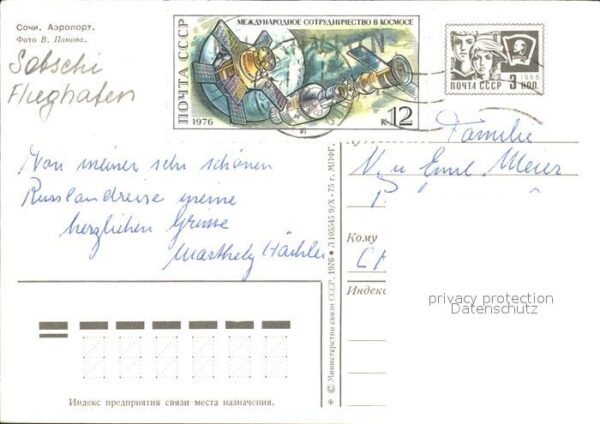 Сочи. Аэропорт.
Фото В. Панова.
Sotschi
Flughafen
МЕЖДУНАРОДНОЕ СОТРУДНИЧЕСТВО В КОСМОСЕ
ПОЧТА СССР
1976
12 к
1966
ПОЧТА СССР 3 КОП.
Von meiner sehr schönen
Russlandreise meine
herzlichen Grüsse
Familie
Emil Meier
Кому
Индекс
privacy protection
Datenschutz
© Министерство связи СССР. 1976 ● Л 105345 9/X - 75 г. МПФГ.
Индекс предприятия связи места назначения.